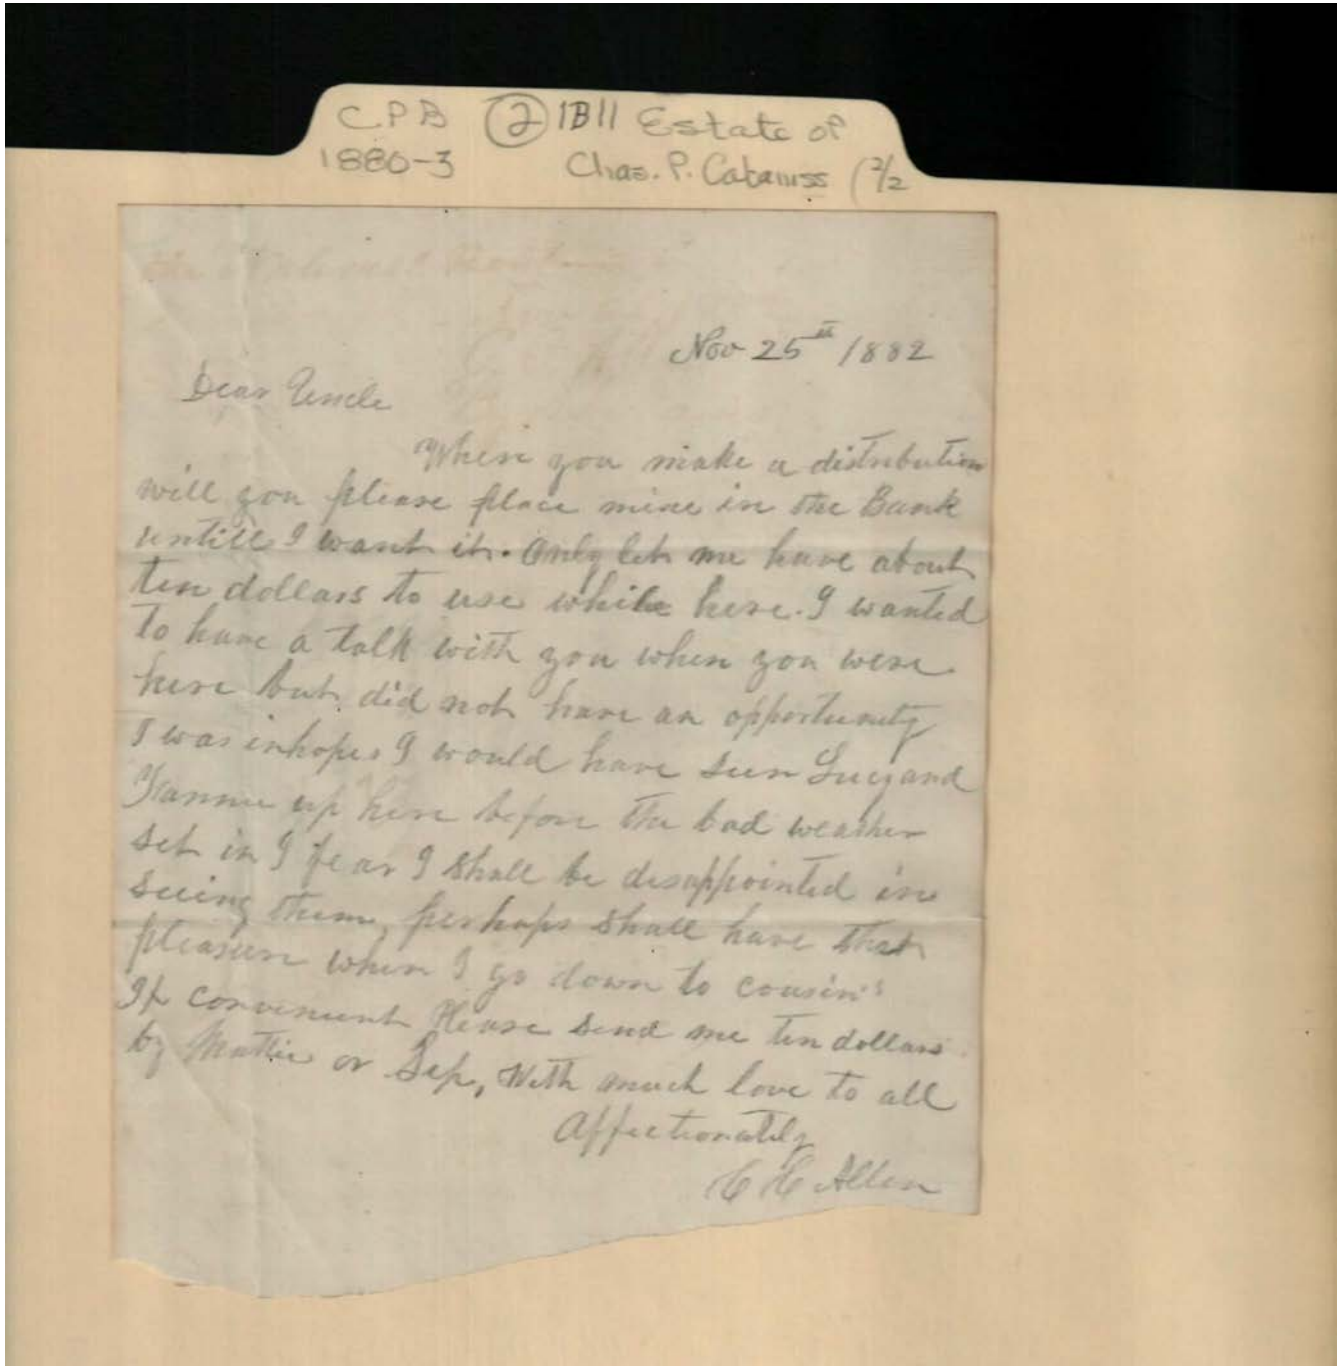 CPB ② 1B11 Estate of
1880-3 Chas. P. Cabaniss (2/2
Nov 25th 1882
Dear Uncle
When you make a distribution
will you please place mine in the Bank
untill I want it. Only let me have about
ten dollars to use while here. I wanted
to have a talk with you when you were
here but did not have an opportunity
I was inhopes I would have seen Lucy and
Fannie up here before the bad weather
set in I fear I shall be disappointed in
seeing them, perhaps shall have that
pleasure when I go down to cousin's
If convenient Please send me ten dollars
by Mattie or Sep, With much love to all
Affectionately
C C Allen